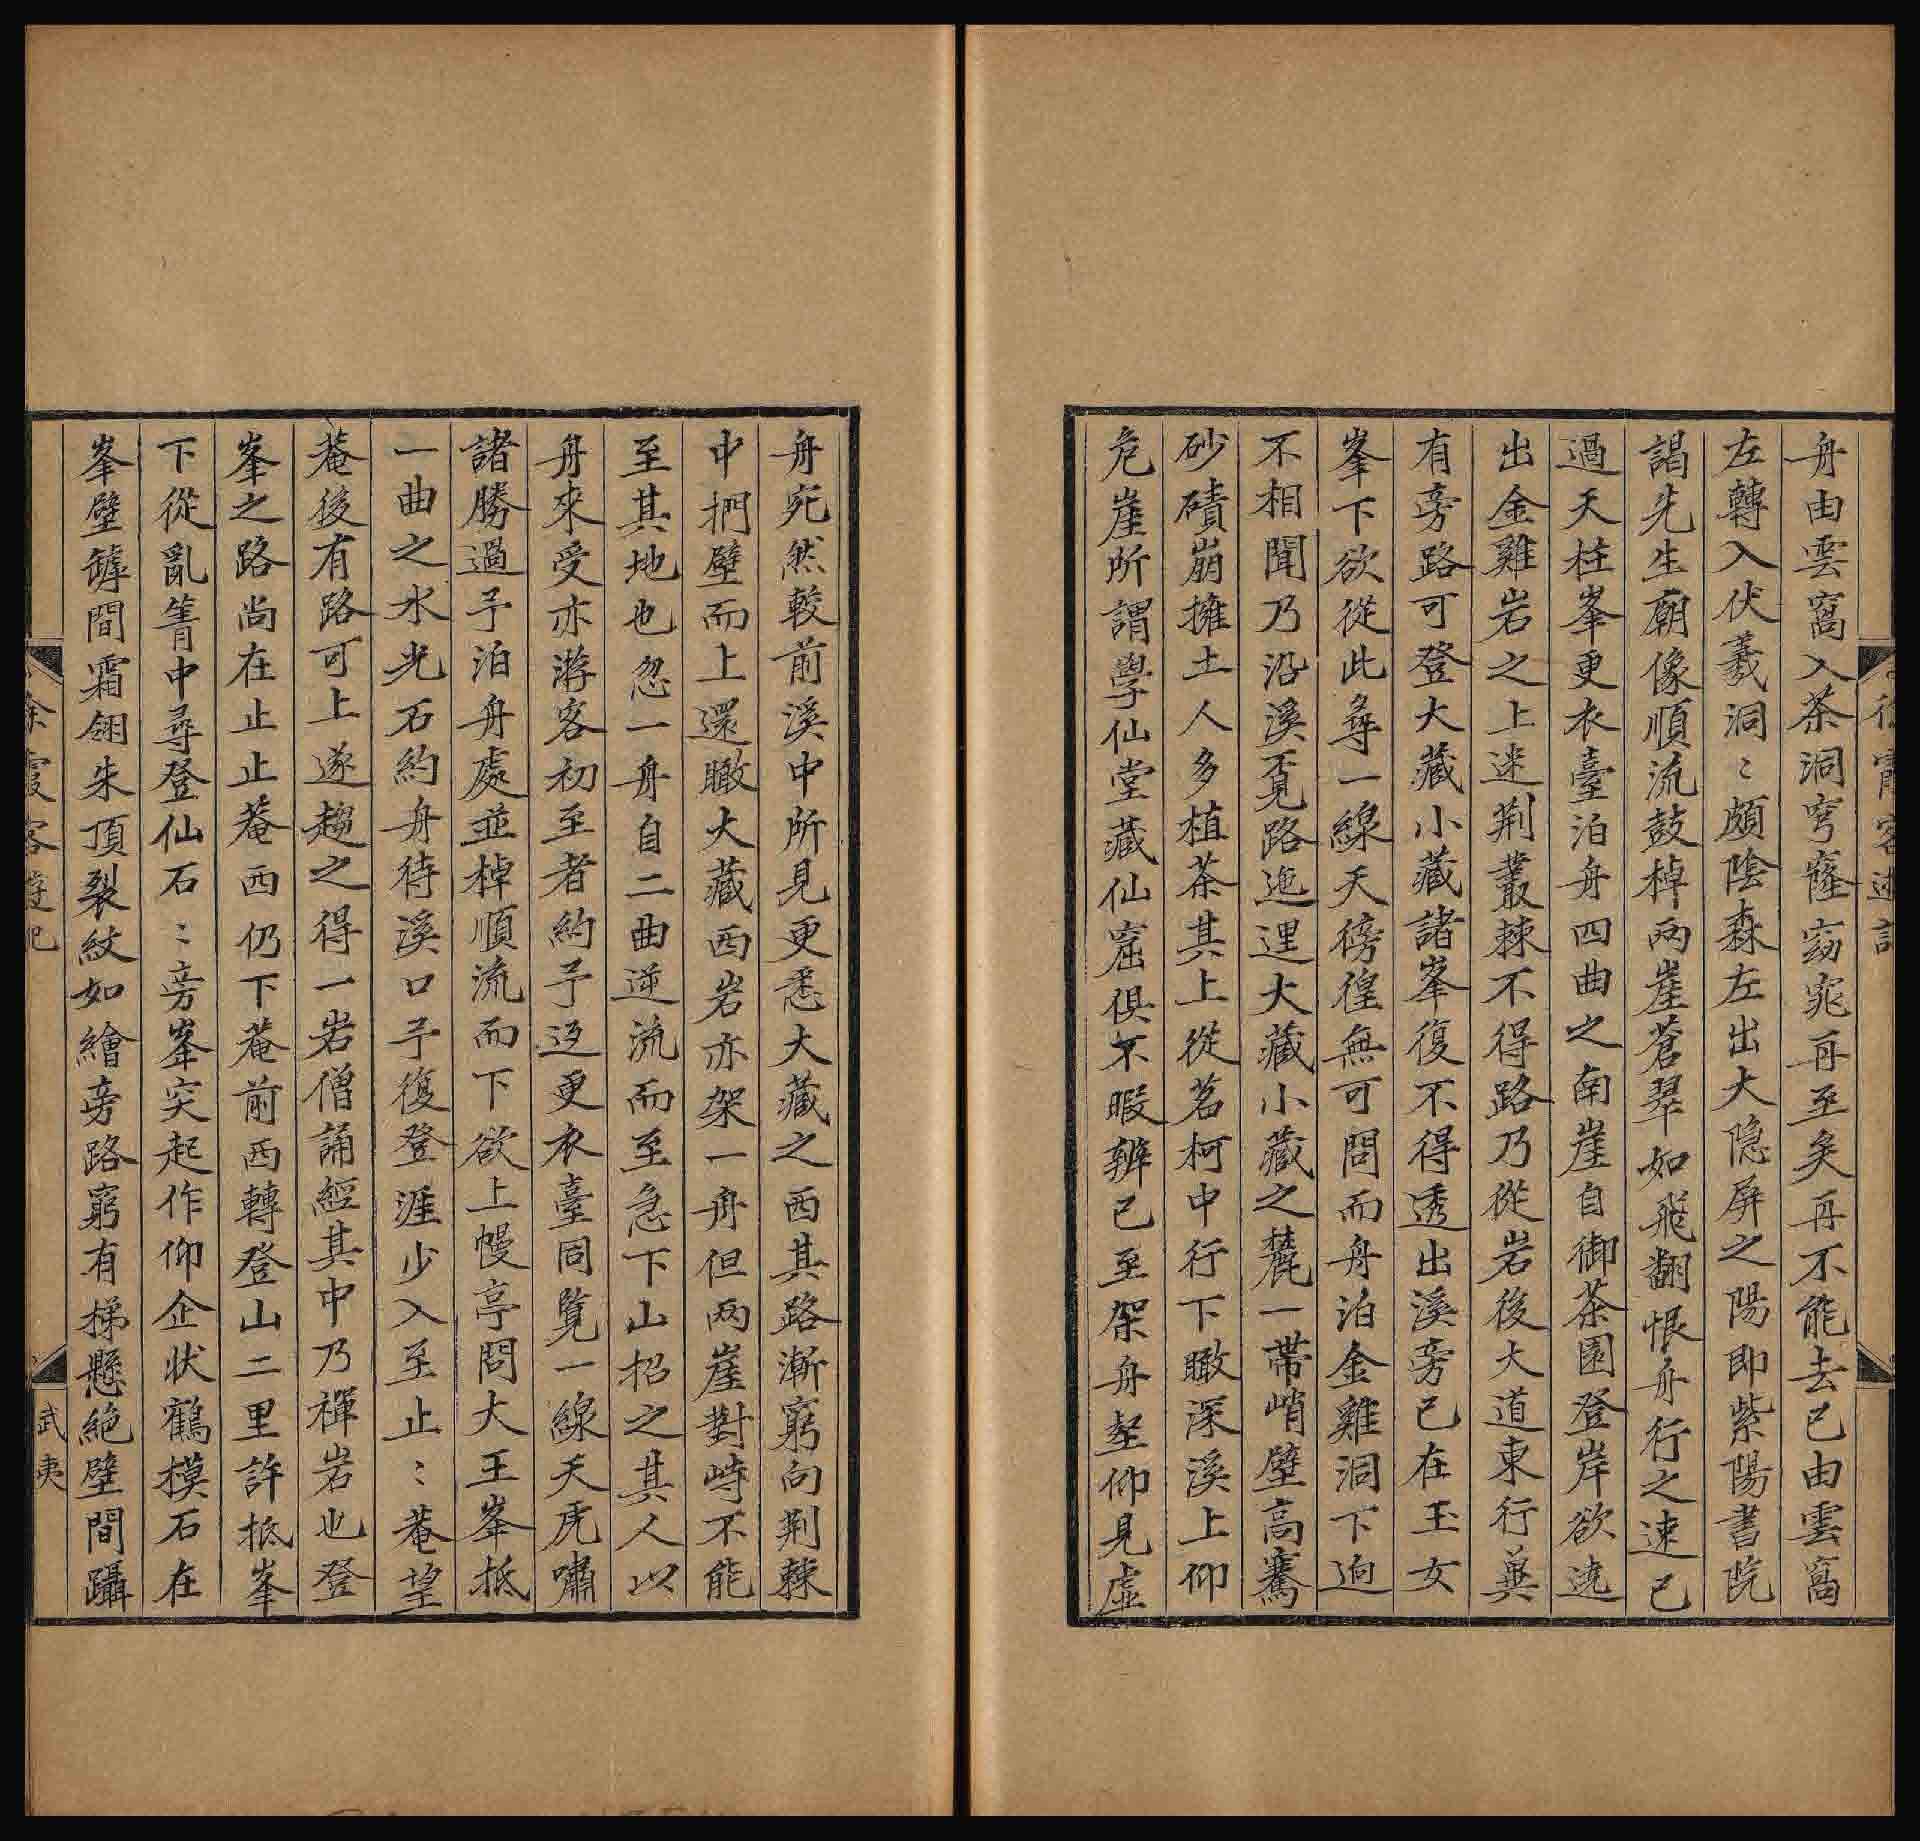 舟由雲窩入茶洞穹窿窈窕再至矣再不能去已由雲窩
左轉入伏羲洞〻頗陰森左出大隐屏之陽即紫陽書院
謁先生廟像順流鼓棹兩崖蒼翠如飛翻恨舟行之速已
過天柱峯更衣臺泊舟四曲之南崖自御茶園登岸欲遶
出金雞岩之上迷荆叢棘不得路乃從岩後大道東行兾
有旁路可登大藏小藏諸峯復不得透出溪旁已在玉女
峯下欲從此尋一線天徬徨無可問而舟泊金雞洞下逈
不相聞乃沿溪覓路迤逕大藏小藏之麓一帶峭壁高騫
砂磧崩擁土人多植茶其上從茗柯中行下瞰深溪上仰
危崖所謂學仙堂藏仙窟俱不暇辨已至架舟壑仰見虛
舟宛然較前溪中所見更悉大藏之西其路漸窮向荆棘
中捫壁而上還瞰大藏西岩亦架一舟但兩崖對峙不能
至其地也忽一舟自二曲逆流而至急下山招之其人以
舟來受亦游客初至者約予返更衣臺同覧一線天虎嘯
諸勝過予泊舟處並棹順流而下欲上幔亭問大王峯抵
一曲之水光石約舟待溪口予復登涯少入至止〻菴望
菴後有路可上遂趨之得一岩僧誦經其中乃禪岩也登
峯之路尚在止止菴西仍下菴前西轉登山二里許抵峯
下從亂箐中尋登仙石〻旁峯突起作仰企狀鶴模石在
峯壁罅間霜翎朱頂裂紋如繪旁路窮有梯懸絶壁間躡
徐霞客遊記
武夷